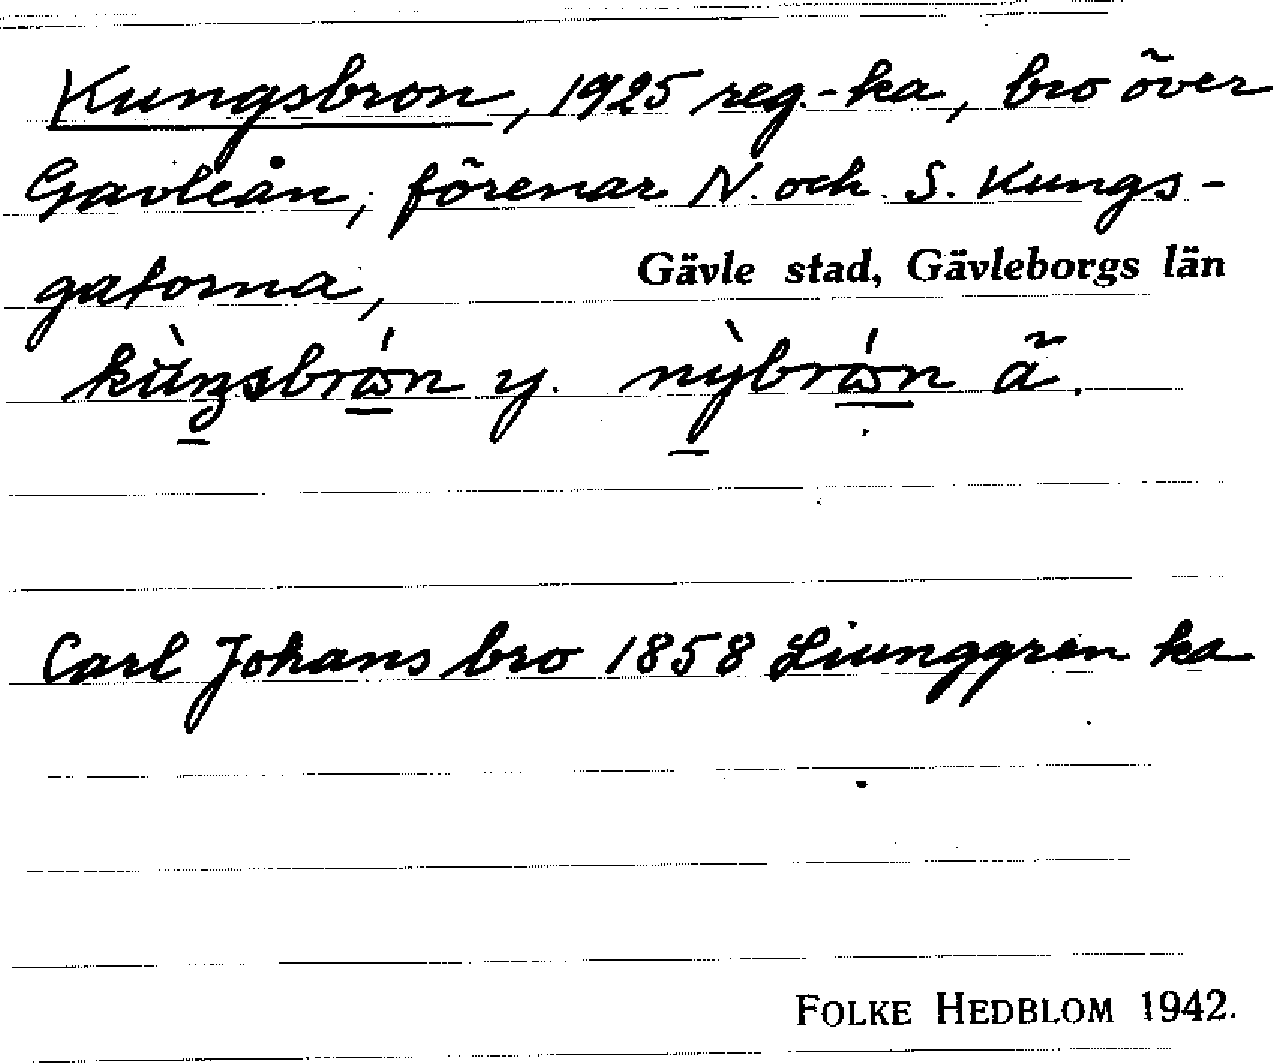 Kungsbron, 1925 reg.-ka, bro över
Gavleån, förenar N. och S. Kungs-
gatorna,
Gävle stad, Gävleborgs län
y. ä.
Carl Johans bro 1858 Ljunggren ka
FOLKE HEDBLOM 1942.